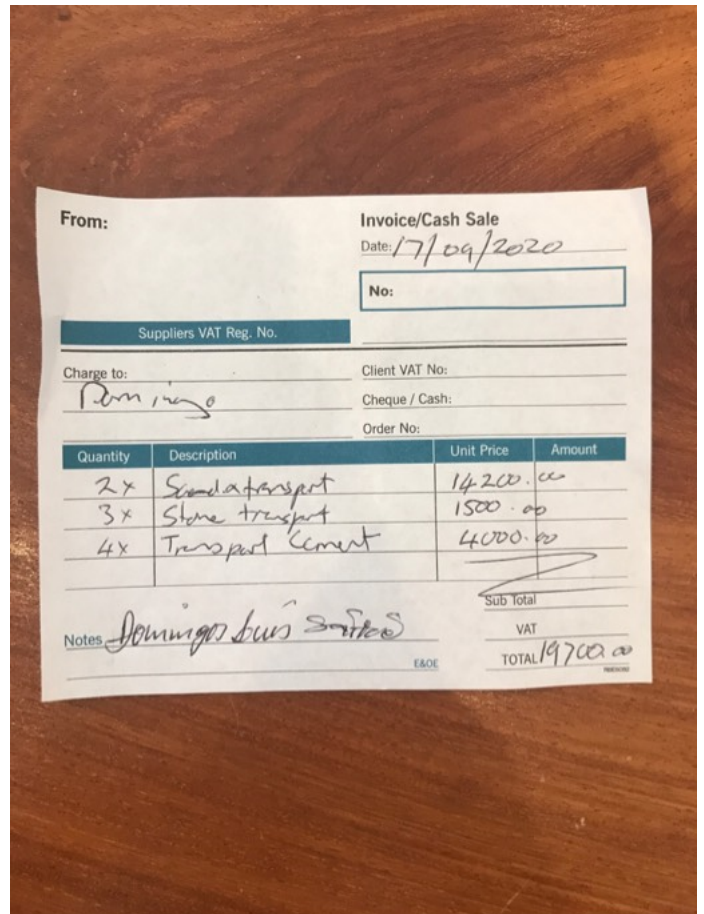 From:
Invoice/Cash Sale
Date: 17/09/2020
No:
Suppliers VAT Reg. No.
Charge to:
Domingo
Client VAT No:
Cheque / Cash:
Order No:
Quantity Description Unit Price Amount
2x transport 14200.00
3x Stone transport 1500.00
4x Transport Cement 4000.00
Sub Total
Notes Domingos Luis
VAT
E&OE
TOTAL 19700.00